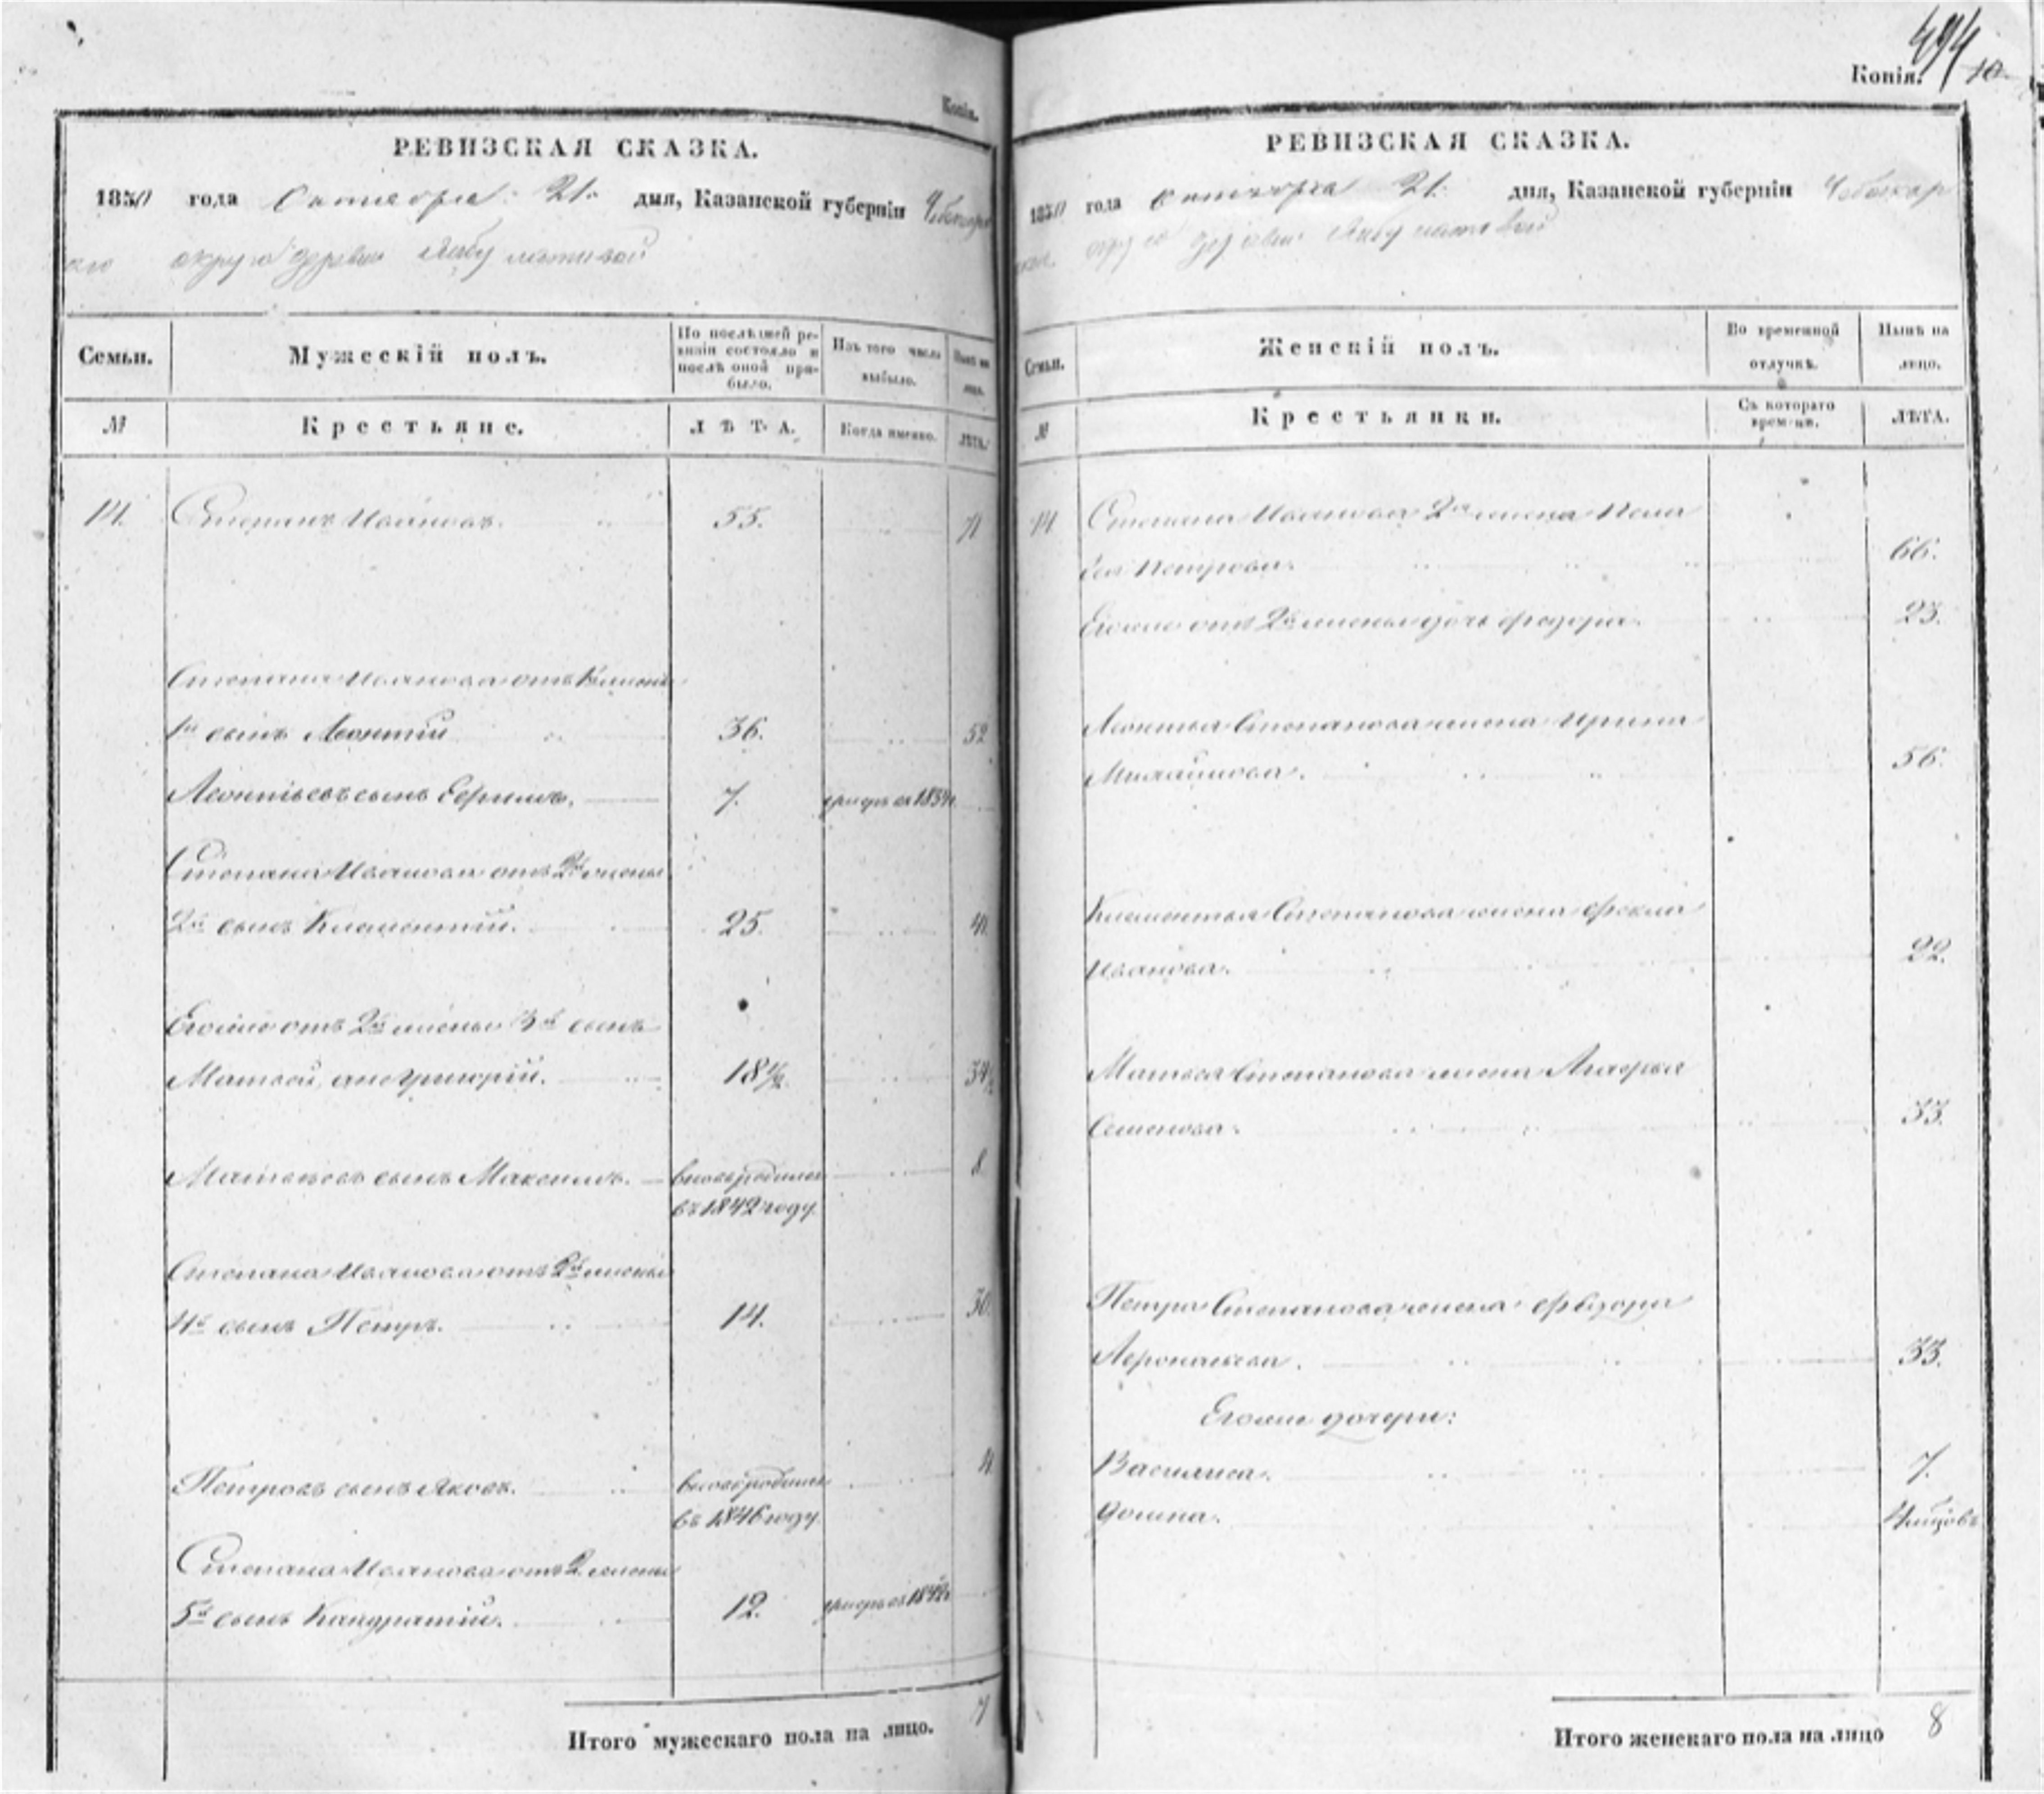 Копія.
РЕВИЗСКАЯ СКАЗКА.
1850 года Октября 21. дня, Казанской губерніи Чебоксар
ско округа деревни
Семьи.
Мужескій полъ.
По послѣдней ре-
визіи состояло и
послѣ оной при-
было.
Изъ того числа
выбыло.
Нынѣ на
лицо.
№
Крестьяне.
ЛѢТА.
Когда именно.
ЛѢТА.
14. Степанъ Ивановъ. 55. 71
Степана Иванова отъ 1й жены
1й сынъ Леонтій 36. 52
Леонтьевъ сынъ Ефримъ. 7. въ 1834
Степана Иванова отъ 2й жены
2й сынъ Клементій. 25. 41.
Егоже отъ 2й жены 3й сынъ
Матвей, онже Григорій. 18 1/2. 34 1/2
Матвеевъ сынъ Максимъ. вновь родился 8
въ 1842 году.
Степана Иванова отъ 2й жены
4й сынъ Петръ. 14. 30.
Петровъ сынъ Яковъ. вновь родился 4
въ 1846 году.
Степана Иванова отъ 2 жены
5й сынъ Кандратій. 12. въ 1842
Итого мужескаго пола на лицо. 7
494
Копія. 10.
РЕВИЗСКАЯ СКАЗКА.
1850 года Октября 21. дня, Казанской губерніи Чебоксар
ской округа деревни
Семьи.
Женскій полъ.
Во временной
отлучкѣ.
Нынѣ на
лицо.
№
Крестьянки.
Съ котораго
времени.
ЛѢТА.
14 Степана Иванова 2я жена Пела
гея Петрова. 66.
Егоже отъ 2й жены дочь Федора. 23.
Леонтья Степанова жена Ирина
Михайлова. 56.
Клементья Степанова жена Фекла
Иванова. 22.
Матвея Степанова жена Агафья
Семенова. 33.
Петра Степанова жена Федора
33.
Егоже дочери:
Василиса. 7.
Домна. 4 месяцовъ
Итого женскаго пола на лицо 8